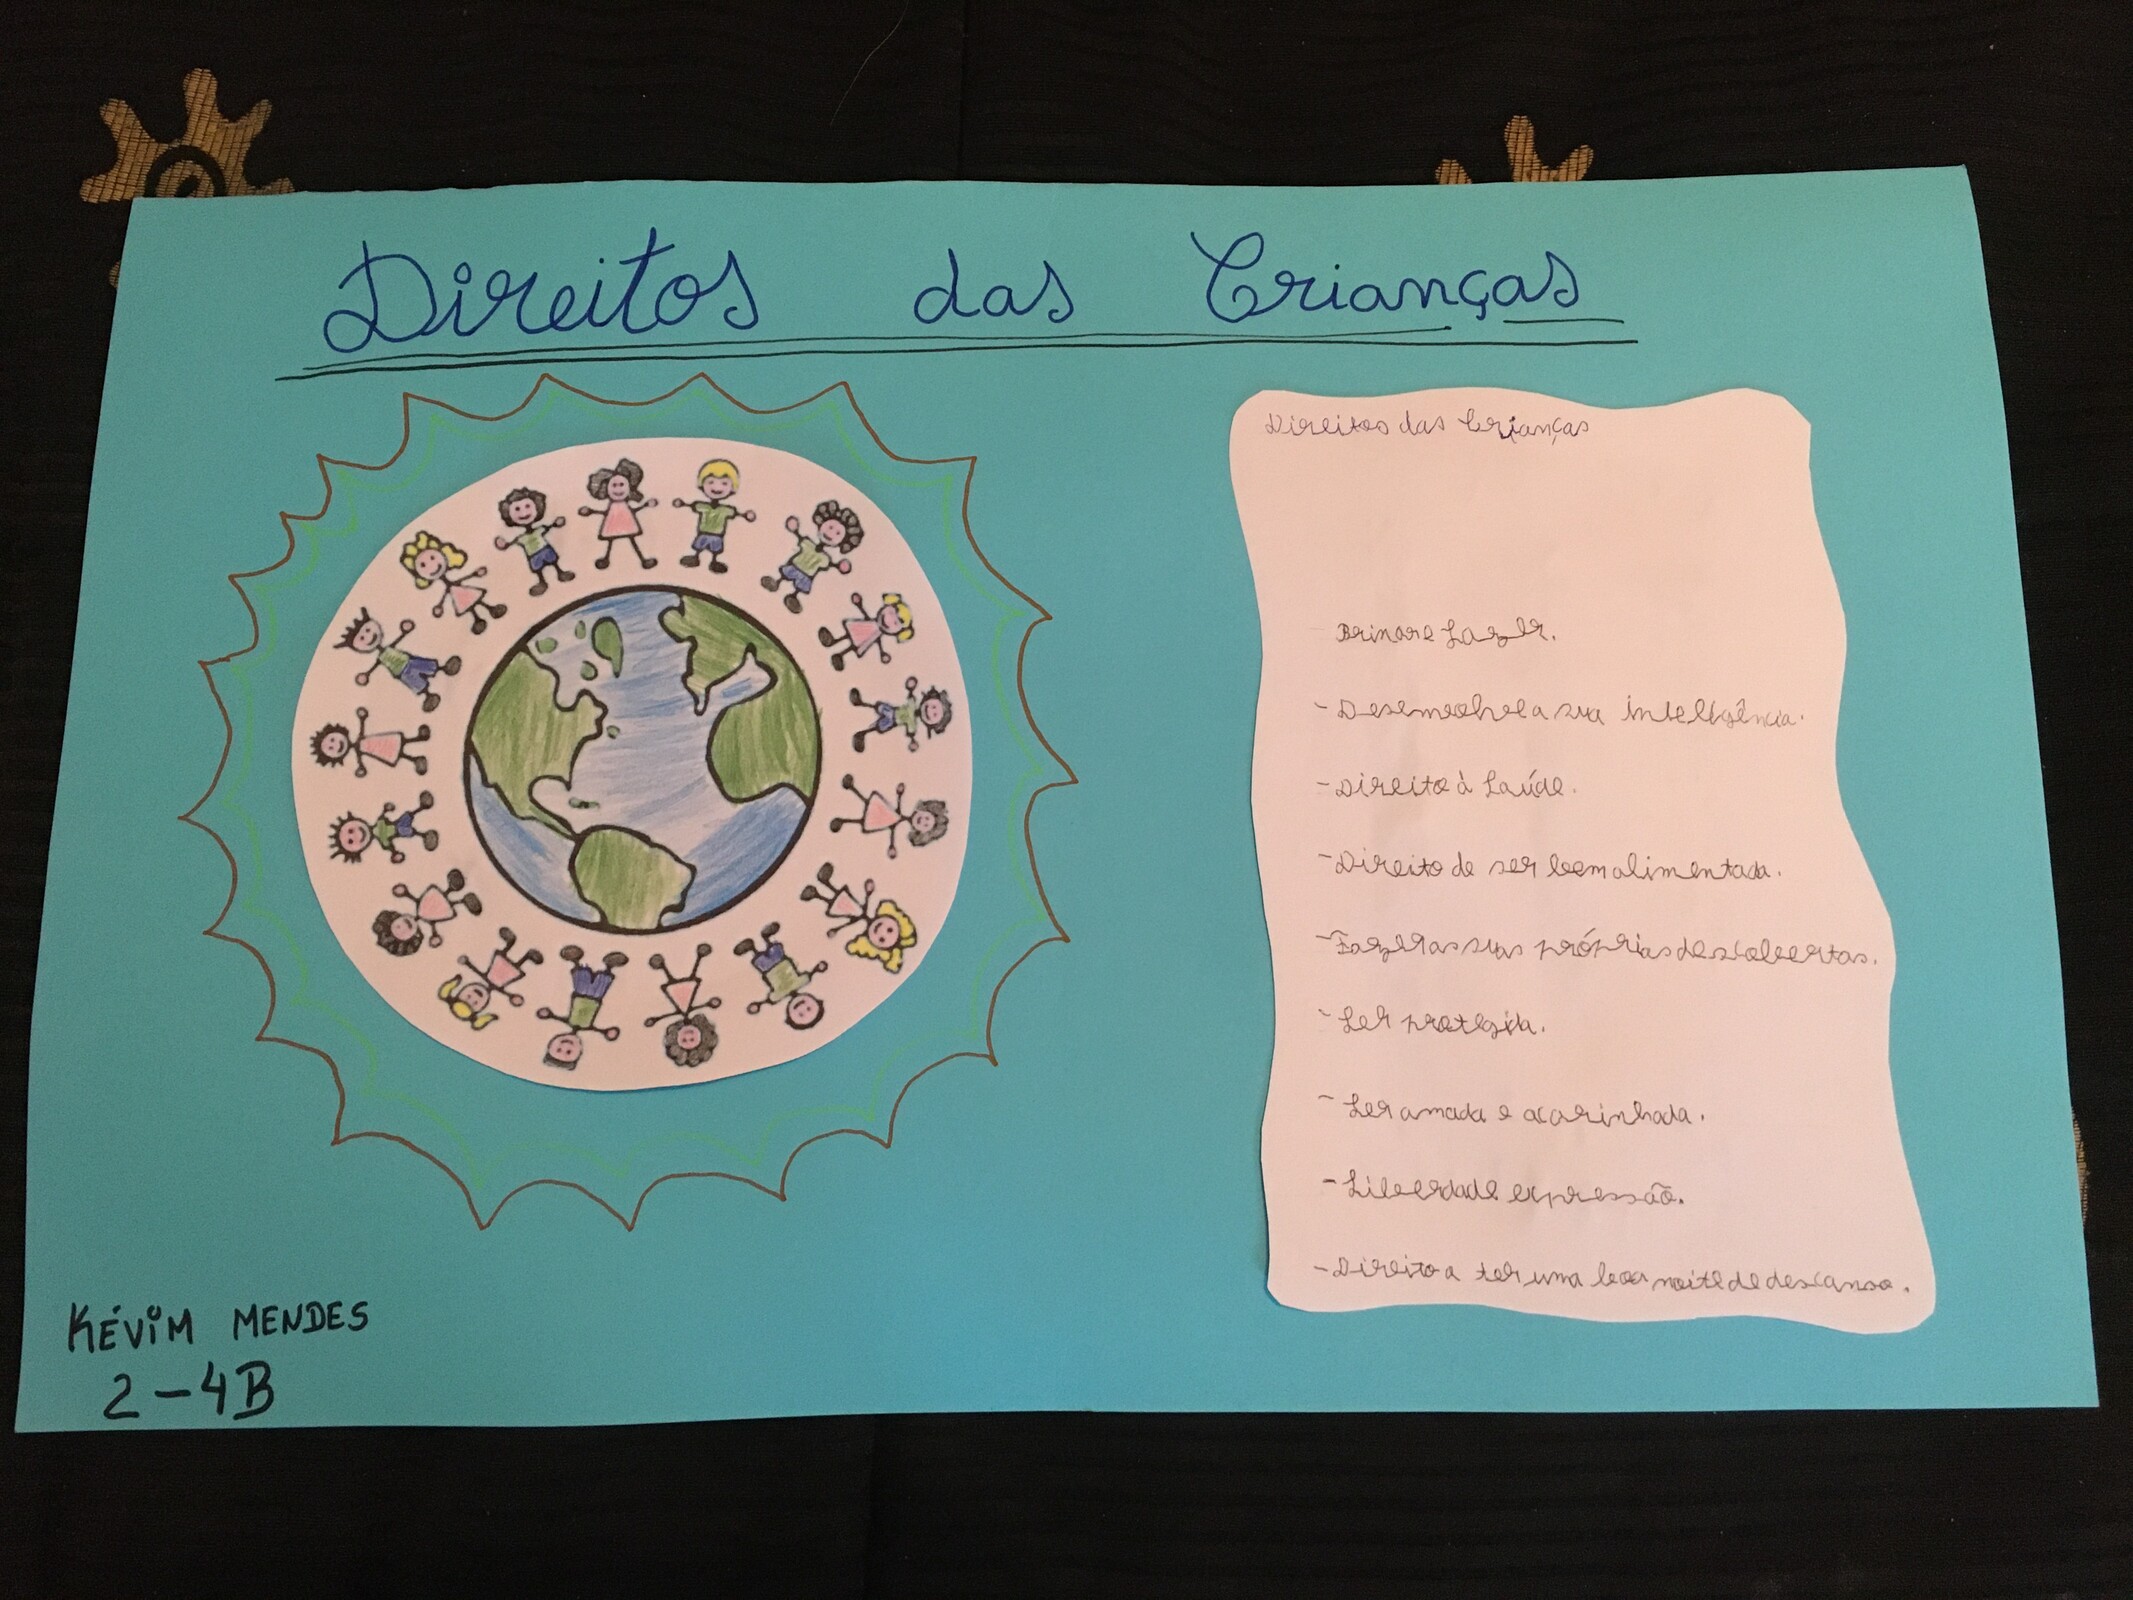 Direitos das Crianças
Direitos das Crianças
Brinare Lazer.
- Desemvolvela sua inteligência.
- Direito à Saúde.
- Direito de ser bem alimentada.
- Fazer as suas próprias descobertas.
- Ser protegida.
- Ser amada e acarinhada.
- Liberdade expressão.
- Direito a ter uma boa noite de descanso.
KÉVIM MENDES
2-4B